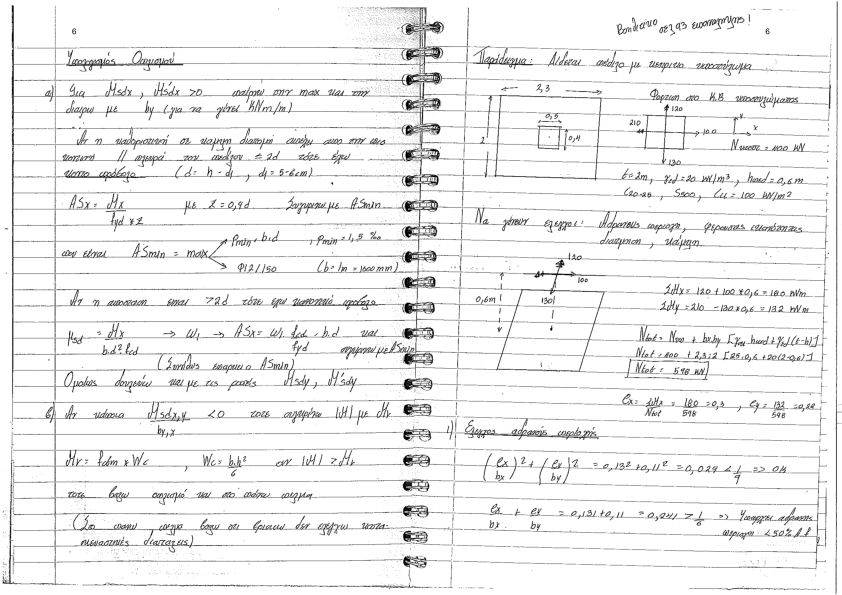 6
Υπολογισμός Οπλισμού
α) Για Msdx, M'sdx > 0 παίρνω την max και την
διαιρω με by (για να γίνει kNm/m)
Αν η καθοριστική σε κάμψη διατομή απέχει απο την πιο
κοντινή // πλευρά του πεδίλου ≤ 2d τότε έχω
κοντο πρόβολο (d = h - d1, d1 = 5-6cm)
ASx = Mx / fyd * z με z = 0,9d Συγκρινω με ASmin
που είναι ASmin = max
ρmin · b·d , ρmin = 1,5 ‰
Φ12/150 (b = 1m = 1000mm)
Αν η αποσταση ειναι > 2d τότε εχω
πρόβολο
μsd = Mx / b·d²·fcd → ω1 → ASx = ω1 fcd/fyd · b·d και
συγκρινω με ASmin
(Συνήθως επαρκει ο ASmin)
Ομοίως δουλεύω και με τις ροπές Msdy, M'sdy
β) Αν κάποια Msdx,y / by,x < 0 τοτε συγκρίνω |M| με Mr
Mr = fctm * Wc , Wc = b·h² / 6 αν |M| > Mr
τοτε βαζω οπλισμό και στο επάνω πελμα
(Στο πανω πελμα βαζω οτι βρισκω δεν ελεγχω κατα-
σκευαστικές διατάξεις)
σελ 93 επαναληψης!
6
Παράδειγμα: Δίδεται πεδιλο με κεντρικο υποστύλωμα
2,3
2
0,5
0,4
Φορτιση στο Κ.Β υποστυλώματος
120
210
100
130
y
x
Nυποστ = 400 kN
t = 2m, γεδ = 20 kN/m³, hπεδ = 0,6m
C20-25, S500, Cu = 100 kN/m²
Να γίνουν ελεγχοι: Αδρανους περιοχη, φερουσας ικανότητας
διατμηση, κάμψη
120
100
130
0,6m
ΣMx = 120 + 100*0,6 = 180 kNm
ΣMy = 210 - 130*0,6 = 132 kNm
Ntot = 400 + 2,3·2 [25·0,6 + 20(2-0,6)]
Ntot = 598 kN
ex = ΣMx / Ntot = 180 / 598 = 0,3 , ey = 132 / 598 = 0,22
1) Ελεγχος αδρανής περιοχής
(ex / bx)² + (ex / by)² = 0,13² + 0,11² = 0,029 < 1/9 => OK
ex / bx + ex / by = 0,131 + 0,11 = 0,241 > 1/6 => Υπαρχει αδρανης
περιοχη < 50%